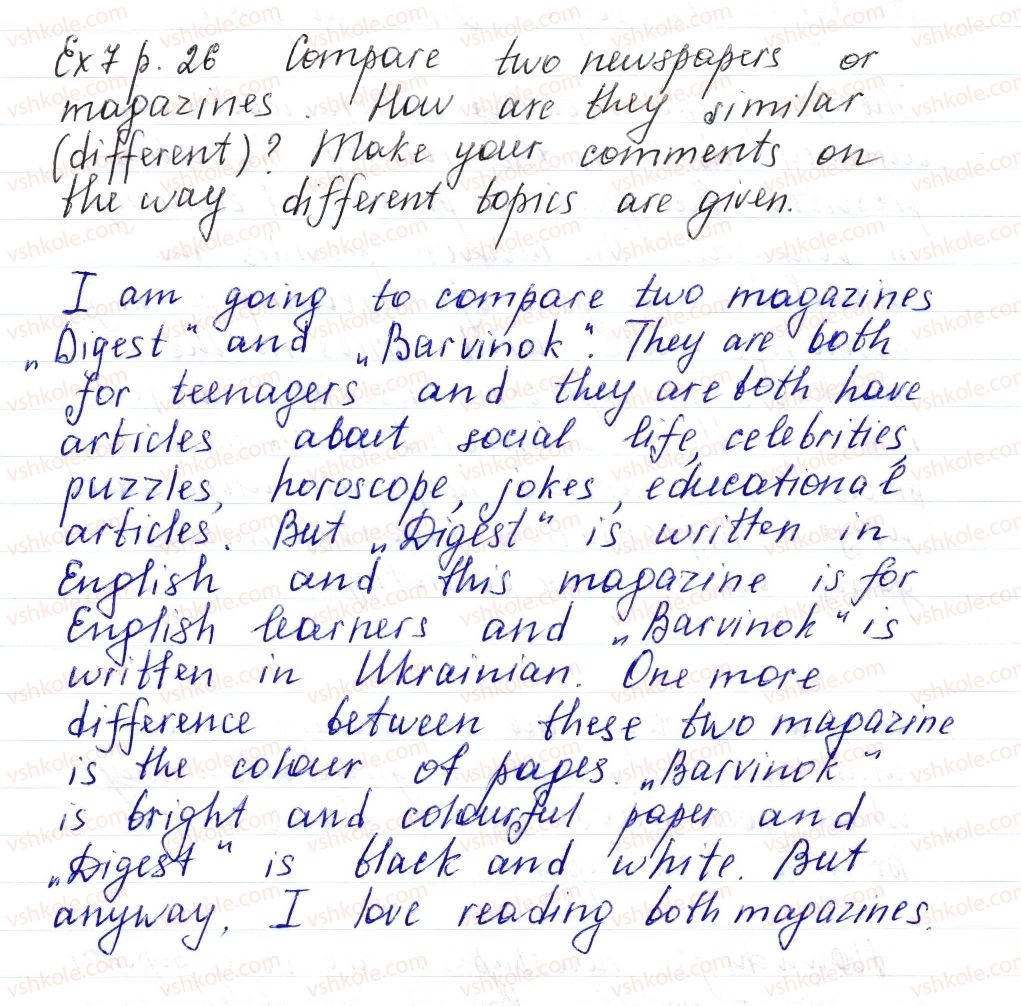 Ex 7 p. 26 Compare two newspapers or
magazines. How are they similar
(different)? Make your comments on
the way different topics are given.
I am going to compare two magazines
„Digest“ and „Barvinok“. They are both
for teenagers and they are both have
articles about social life, celebrities,
puzzles, horoscope, jokes, educational
articles. But „Digest“ is written in
English and this magazine is for
English learners and „Barvinok“ is
written in Ukrainian. One more
difference between these two magazine
is the colour of pages. „Barvinok“
is bright and colourful paper and
„Digest“ is black and white. But
anyway, I love reading both magazines.
vshkole.com